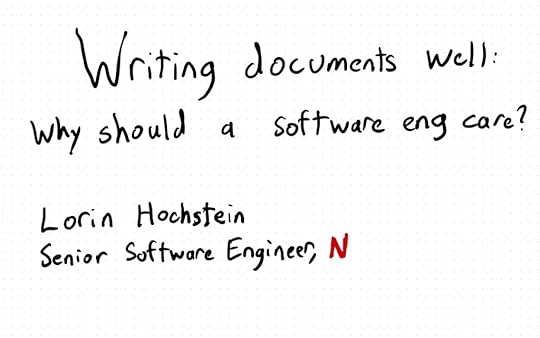 Writing documents well:
Why should a software eng care?
Lorin Hochstein
Senior Software Engineer, N